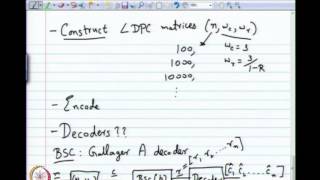 - Construct LDPC matrices (n, w_c, w_r)
100, w_c = 3
1000, w_r = 3/(1-R)
10000,
⋮
- Encode
- Decoders ??
BSC: Gallager A decoder
[r_1, r_2 ... r_n]
s BSC(p) Decoder [ĉ_1 ĉ_2 ... ĉ_n]